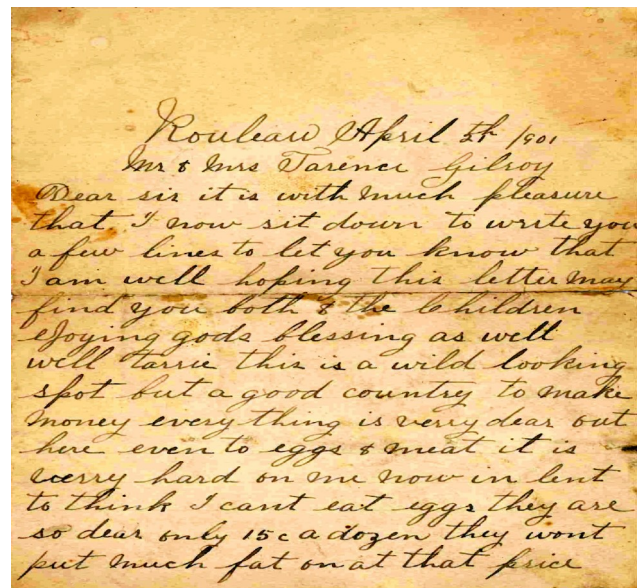 Rouleau April 5th 1901
Mr & Mrs Tarence Gilroy
Dear sir it is with much pleasure
that I now sit down to write you
a few lines to let you know that
I am well hoping this letter may
find you both & the Children
ejoying gods blessing as well
well tarrie this is a wild looking
spot but a good country to make
money every thing is verry dear out
here even to eggs & meat it is
verry hard on me now in lent
to think I cant eat eggs they are
so dear only 15c a dozen they wont
put much fat on at that price